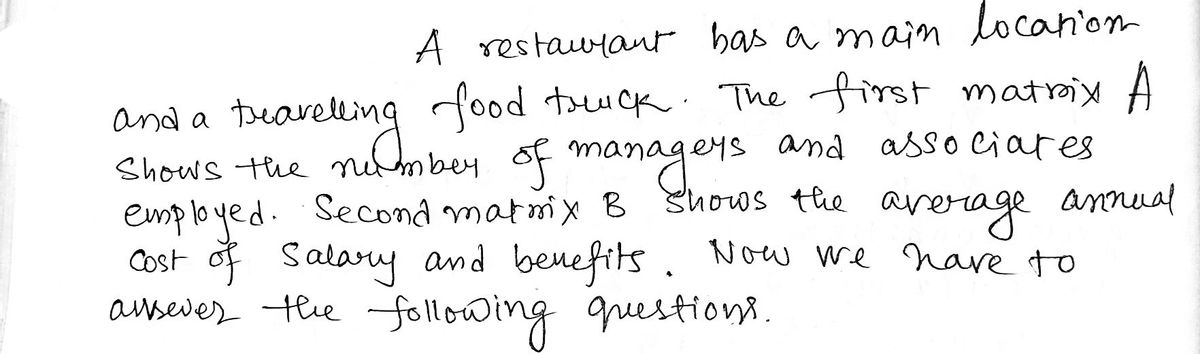 A restaurant has a main location
and a travelling food truck. The first matrix A
shows the number of managers and associates
employed. Second matrix B shows the average annual
cost of salary and benefits. Now we have to
answer the following questions.